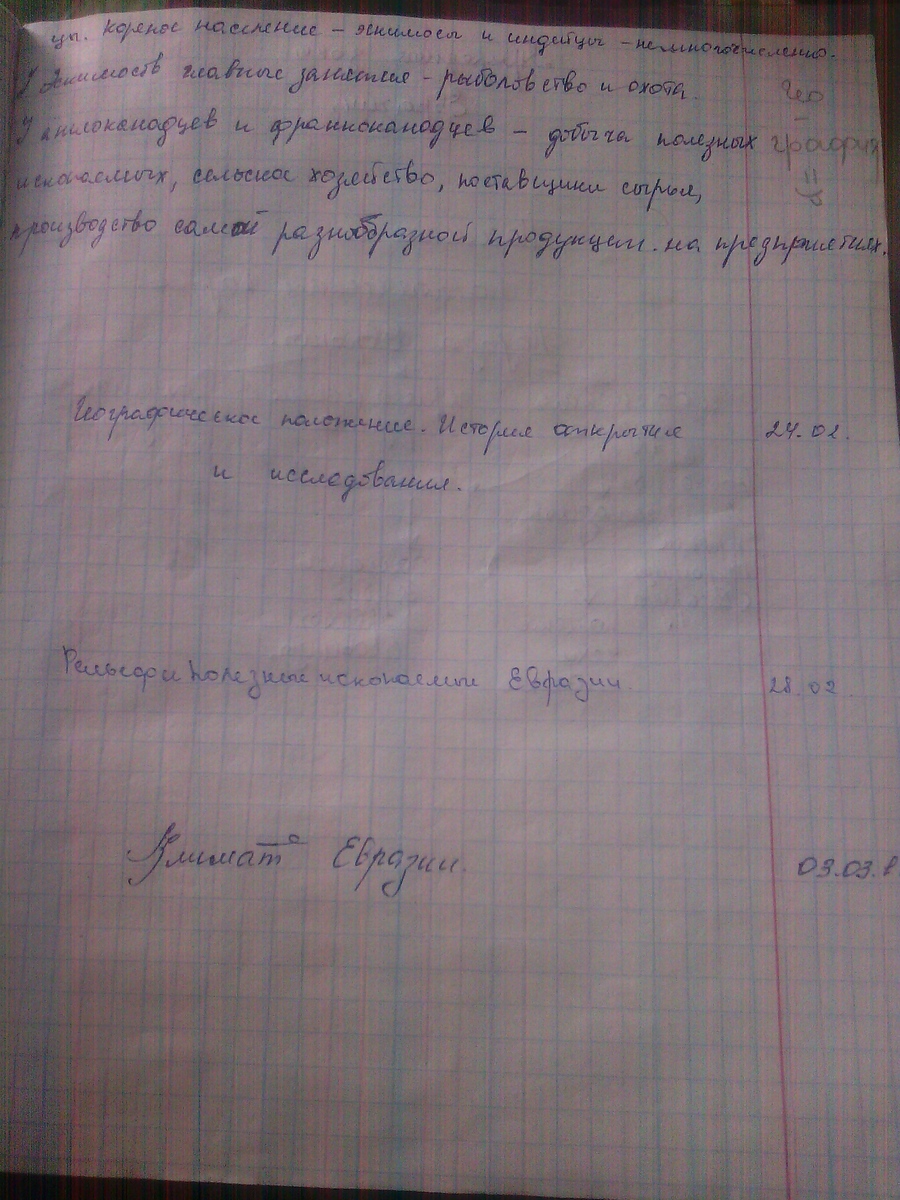 цы. Корeное население - эскимосы и индейцы - немногочисленно.
У эскимосов главные занятия - рыболовство и охота.
У англоканадцев и франкоканадцев - добыча полезных
ископаемых, сельское хозяйство, поставщики сырья,
производство самой разнообразной продукции на предприятиях.
Гео
-
графия
Географическое положение. История открытия 24.02.
и исследования.
Рельеф и полезные ископаемые Евразии. 28.02
Климат Евразии. 03.03.